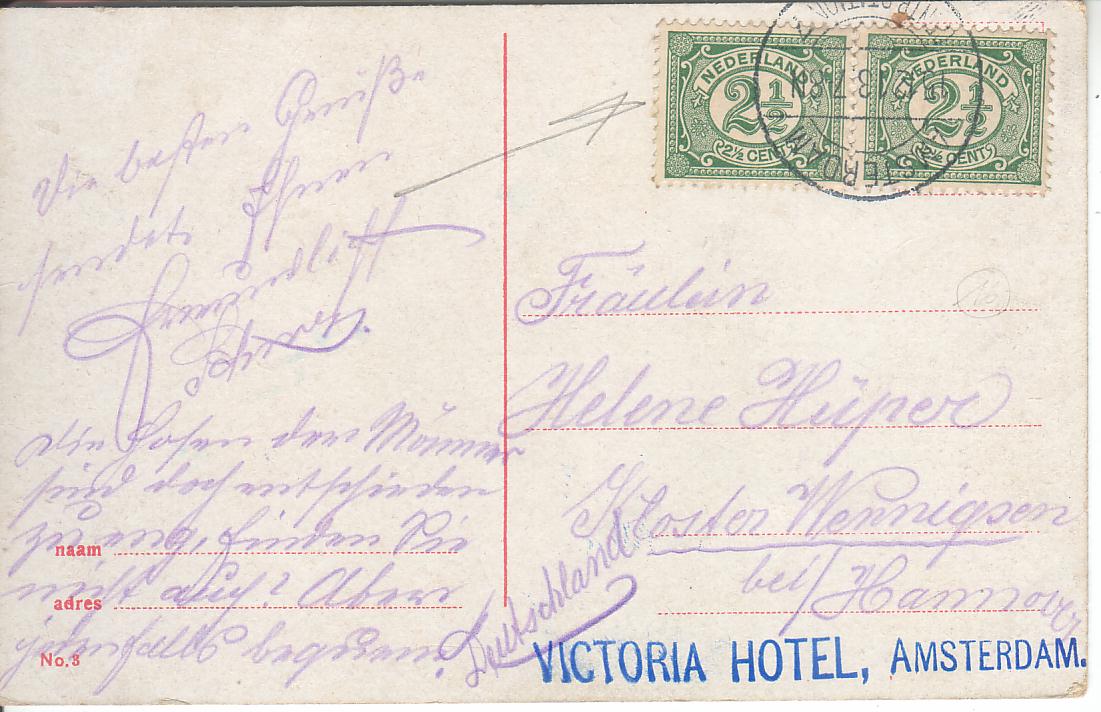 Die besten Grüße
sendet Ihnen
Die Hosen der Männer
sind doch entschieden
zu eng, finden Sie
nicht auch? Aber
jedenfalls bequem.
naam
adres
No. 3
NEDERLAND
2½
2½ CENT
NEDERLAND
2½
2½ CENT
AMSTERDAM
Fräulein
Helene Hüper
Kloster Wennigsen
bei/Hannover
Deutschland
VICTORIA HOTEL, AMSTERDAM.